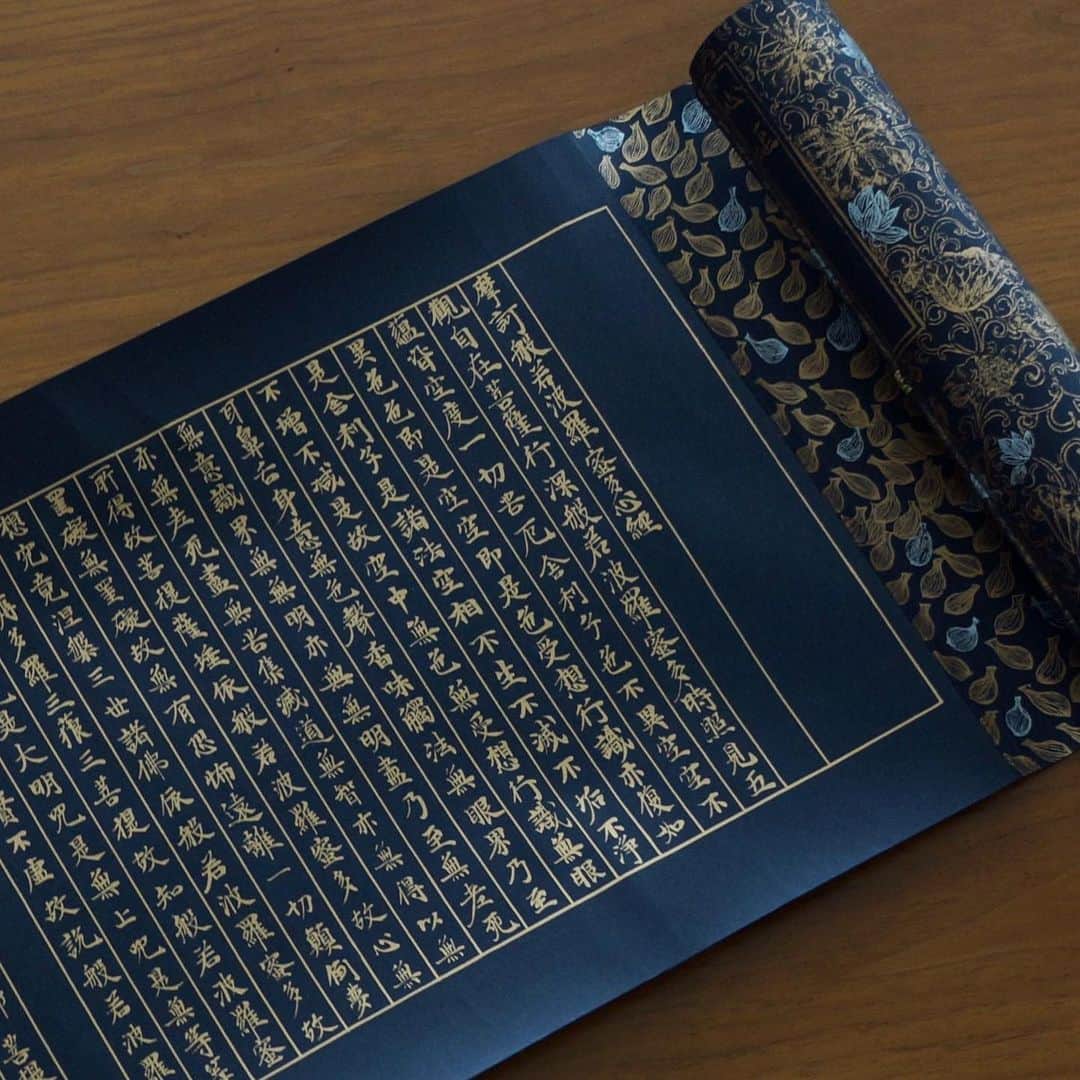 摩訶般若波羅蜜多心經
觀自在菩薩行深般若波羅蜜多時照見五
蘊皆空度一切苦厄舍利子色不異空空不
異色色即是空空即是色受想行識亦復如
是舍利子是諸法空相不生不滅不垢不淨
不增不減是故空中無色無受想行識無眼
耳鼻舌身意無色聲香味觸法無眼界乃至
無意識界無無明亦無無明盡乃至無老死
亦無老死盡無苦集滅道無智亦無得以無
所得故菩提薩埵依般若波羅蜜多故心無
罣礙無罣礙故無有恐怖遠離一切顛倒夢
想究竟涅槃三世諸佛依般若波羅蜜多故
耨多羅三藐三菩提故知般若波羅蜜
是大明咒是無上咒是無等等
實不虛故說般若波羅
菩提